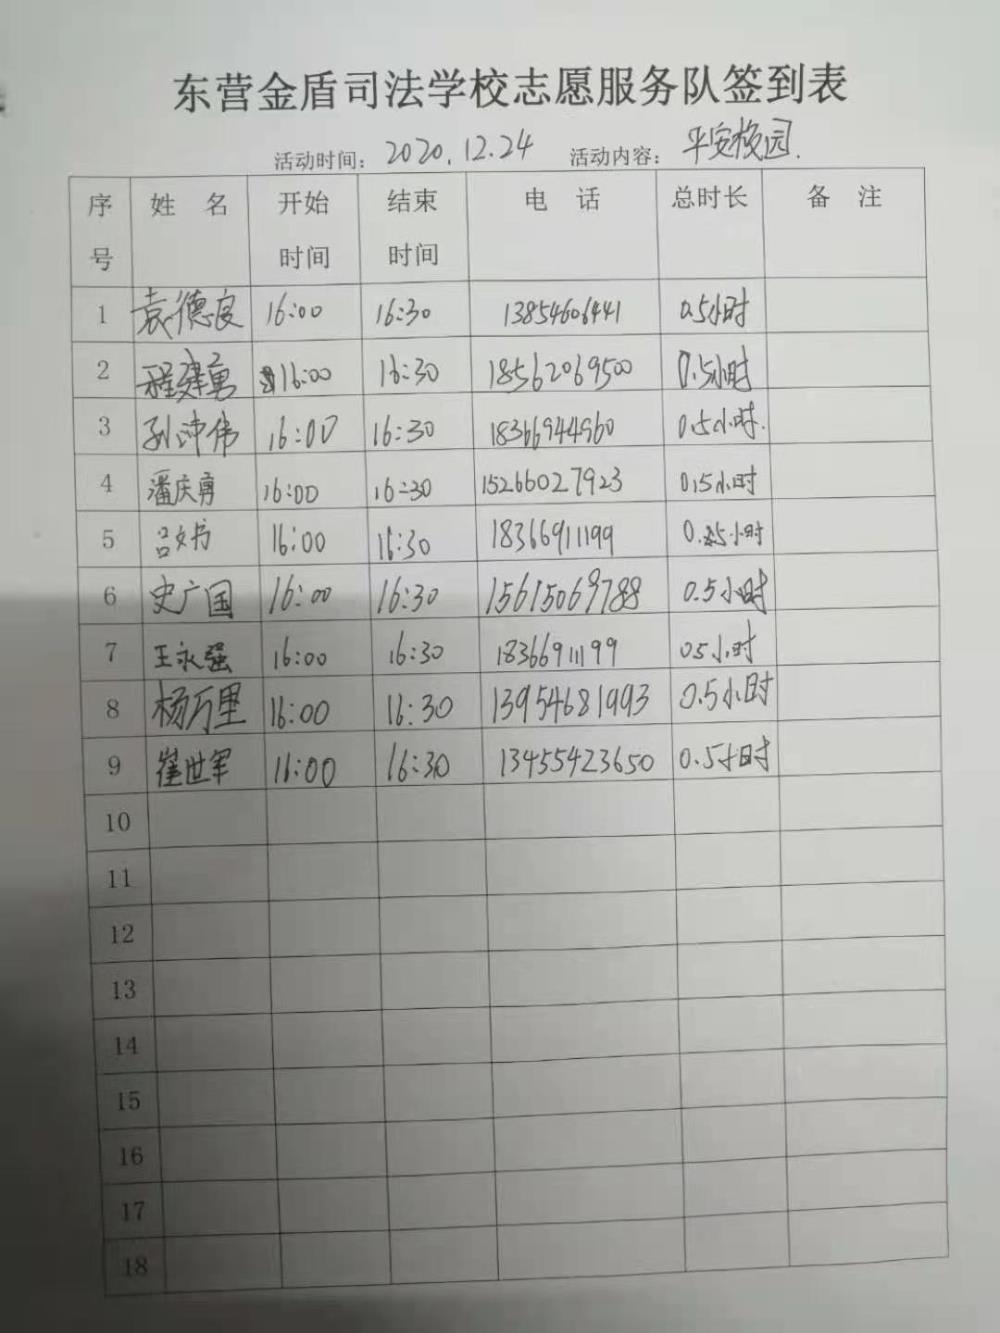 东营金盾司法学校志愿服务队签到表
活动时间：2020.12.24 活动内容：平安校园.
序号 姓名 开始时间 结束时间 电话 总时长 备注
1 袁德良 16:00 16:30 13854606441 0.5小时
2 程建勇 16:00 16:30 18562069500 0.5小时
3 孙冲伟 16:00 16:30 18366944960 0.5小时.
4 潘庆勇 16:00 16:30 15266027923 0.5小时
5 吕文书 16:00 16:30 18366911199 0.5小时
6 史广国 16:00 16:30 15615069788 0.5小时
7 王永强 16:00 16:30 18366911199 05小时
8 杨万里 16:00 16:30 13954681993 0.5小时
9 崔世军 16:00 16:30 13455423650 0.5小时
10
11
12
13
14
15
16
17
18